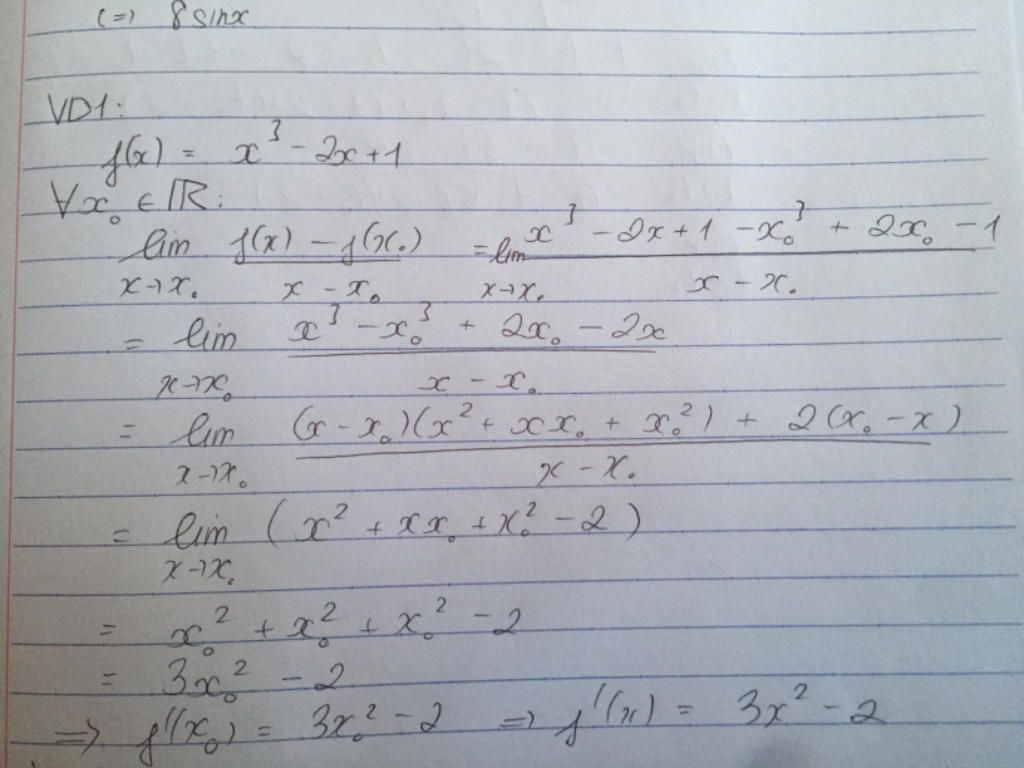 (=) 8 sinx
VD1:
f(x) = x³ - 2x + 1
∀x₀ ∈ ℝ:
lim x→x₀ (f(x) - f(x₀))/(x - x₀) = lim x→x₀ (x³ - 2x + 1 - x₀³ + 2x₀ - 1)/(x - x₀)
= lim x→x₀ (x³ - x₀³ + 2x₀ - 2x)/(x - x₀)
= lim x→x₀ ((x - x₀)(x² + xx₀ + x₀²) + 2(x₀ - x))/(x - x₀)
= lim x→x₀ (x² + xx₀ + x₀² - 2)
= x₀² + x₀² + x₀² - 2
= 3x₀² - 2
=> f'(x₀) = 3x₀² - 2 => f'(x) = 3x² - 2